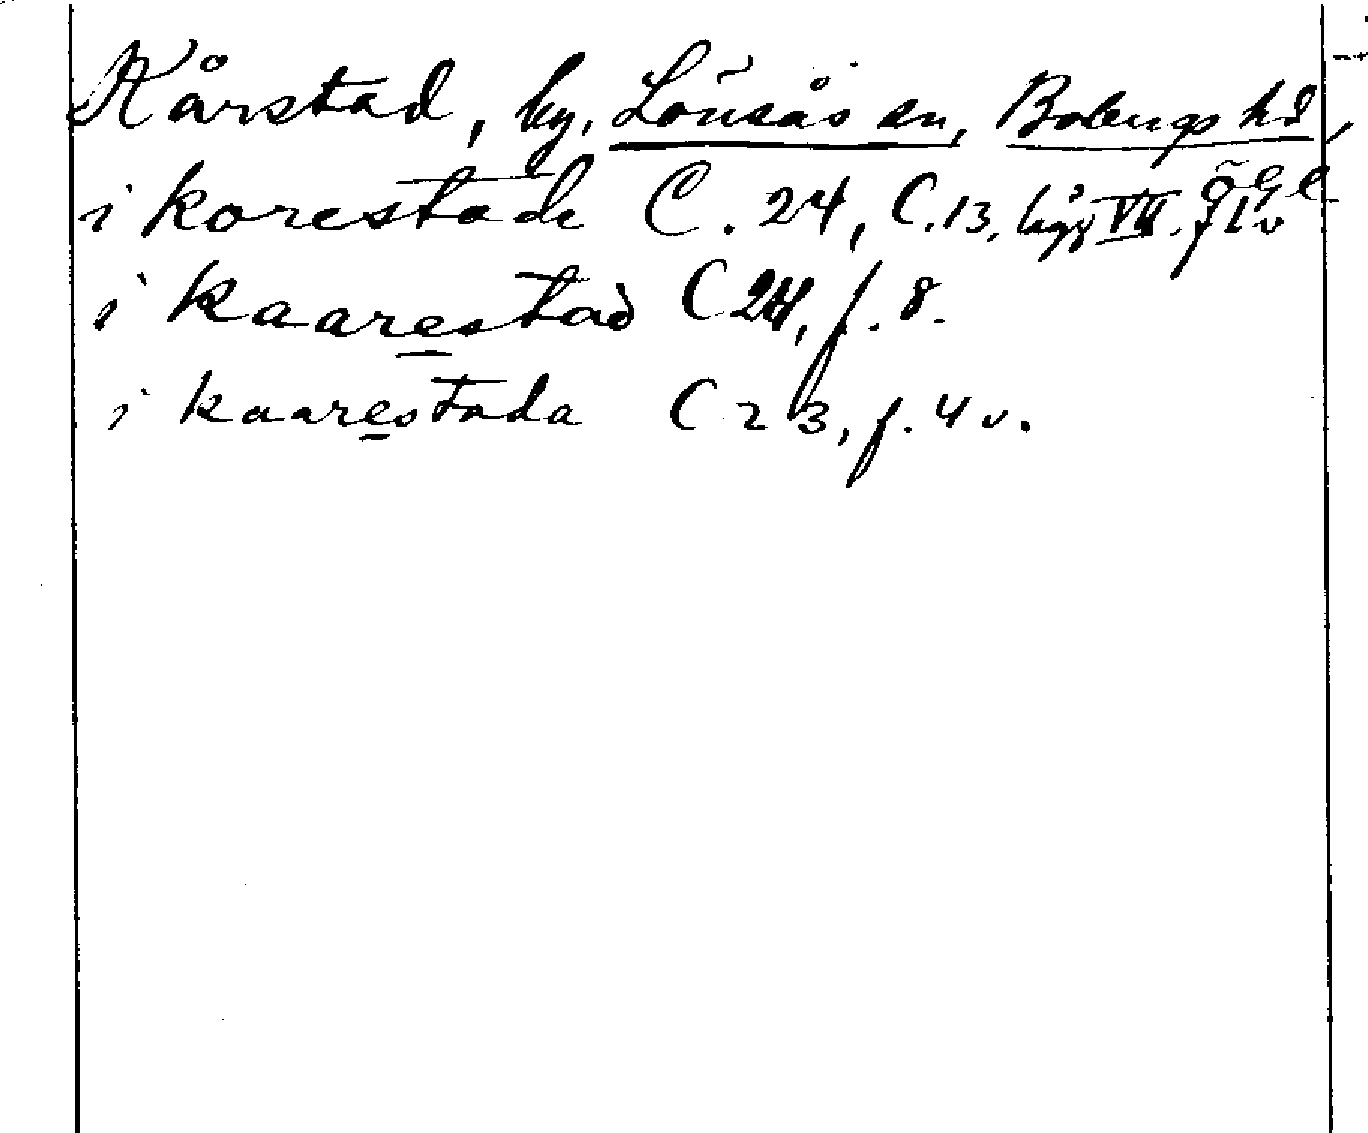 Kårstad, by, Lönsås sn, Bobergs hd,
i korestade C. 24, C.13, lägg VII. ÖGl f 1 v
i kaarestad C 24, f. 8.
i kaarestada C 23, f. 4 v.